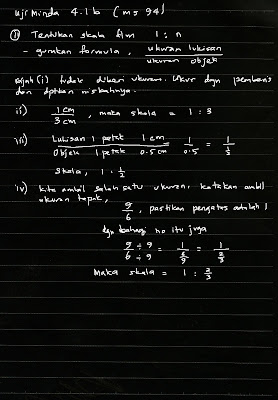 Uji Minda 4.1b (ms 94)
① Tentukan skala dlm 1 : n
- gunakan formula, ukuran lukisan / ukuran objek
Rajah (i) tidak diberi ukuran. Ukur dgn pembaris
dan dptkan nisbahnya.
ii) 1 cm / 3 cm, maka skala = 1 : 3
iii) Lukisan 1 petak 1 cm / Objek 1 petak 0.5 cm = 1 / 0.5 = 1 / ½
Skala, 1 : ½
iv) kita ambil salah satu ukuran, katakan ambil
ukuran tapak,
9/6, pastikan pengatas adalah 1
dgn bahagi no itu juga
9 ÷ 9 / 6 ÷ 9 = 1 / 6/9 = 1 / 2/3
Maka skala = 1 : 2/3